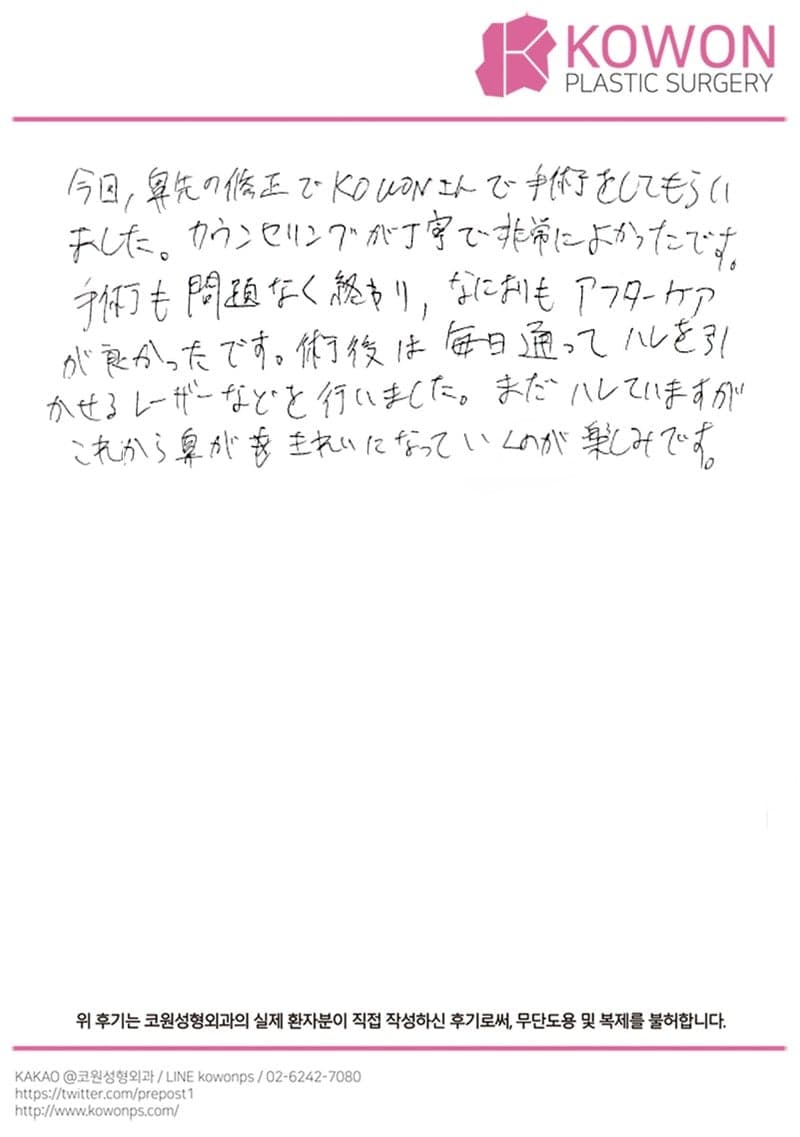 KOWON
PLASTIC SURGERY
今回, 鼻先の修正でKOWONさんで手術をしてもらい
ました。カウンセリングが丁寧で非常によかったです。
手術も問題なく終わり, なによりもアフターケア
が良かったです。術後は毎日通ってハレを引
かせるレーザーなどを行いました。まだハレていますが
これから鼻がきれいになっていくのが楽しみです。
위 후기는 코원성형외과의 실제 환자분이 직접 작성하신 후기로써, 무단도용 및 복제를 불허합니다.
KAKAO @코원성형외과 / LINE kowonps / 02-6242-7080
https://twitter.com/prepost1
http://www.kowonps.com/